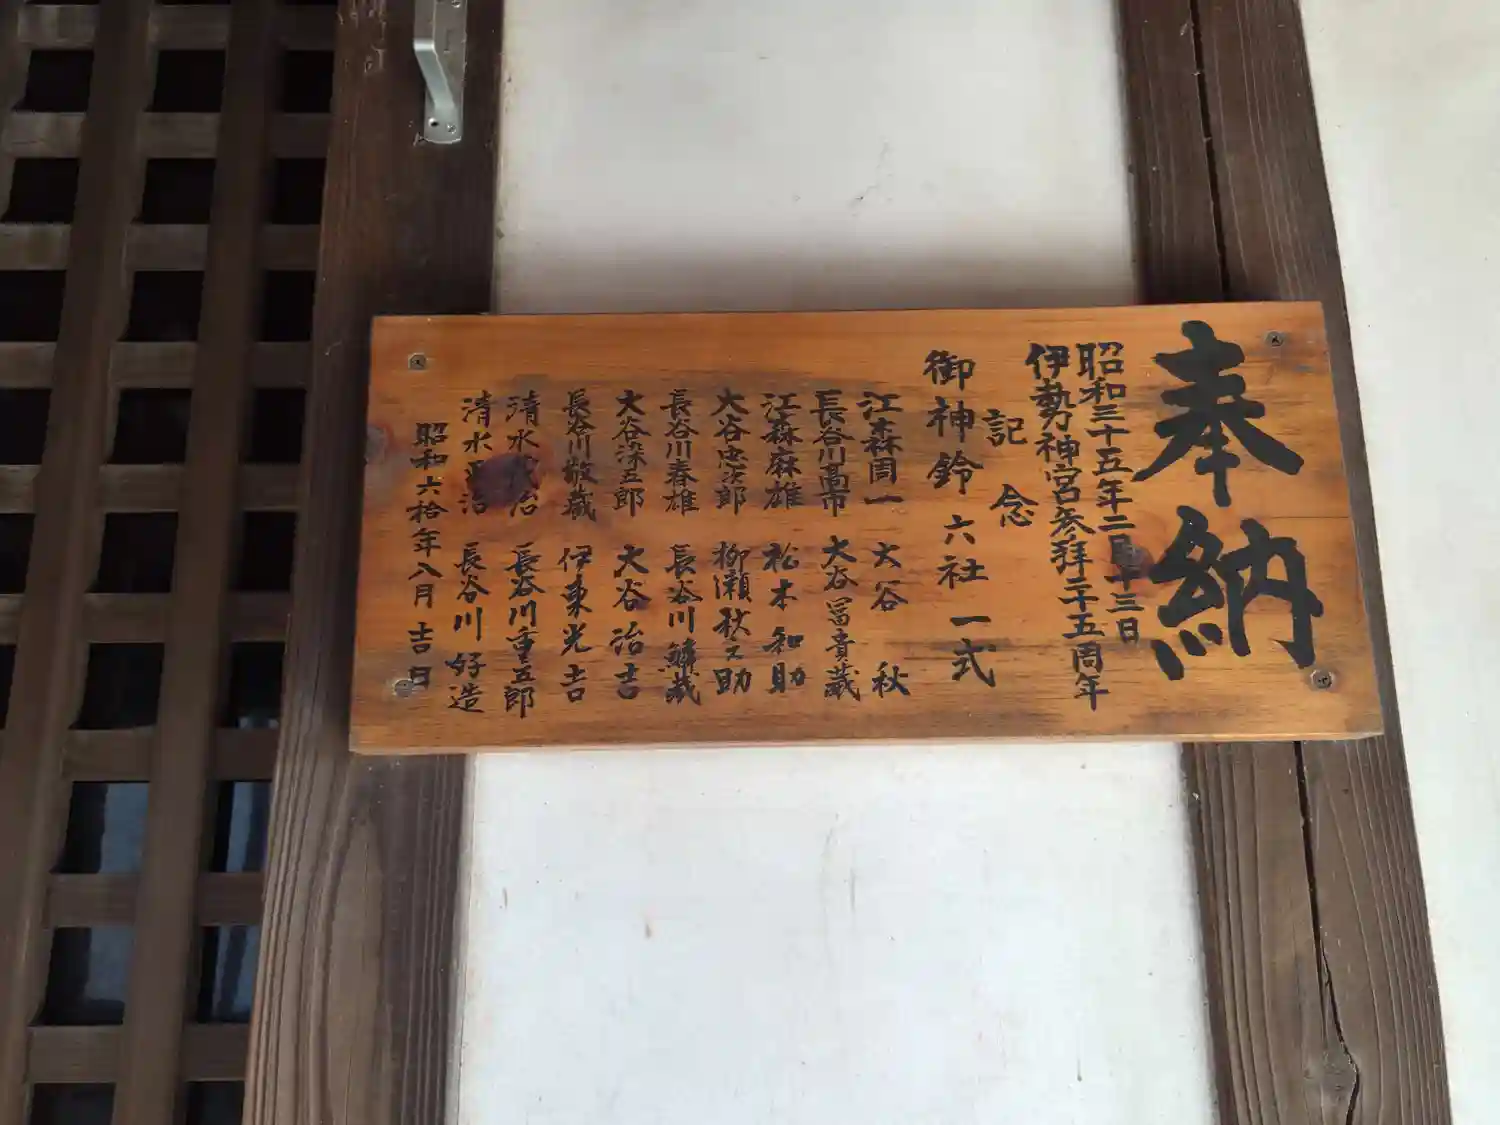 奉納
昭和三十五年二月十三日
伊勢神宮参拝二十五周年
記念
御神鈴 六社 一式
江森周一 大谷 秋
長谷川高市 大谷冨音蔵
江森麻雄 松本和助
大谷忠次郎 柳瀬秋之助
長谷川春雄 長谷川鱗蔵
大谷深五郎 大谷治吉
長谷川敬蔵 伊東光吉
清水 治 長谷川重五郎
清水 治 長谷川好造
昭和六拾年八月吉日